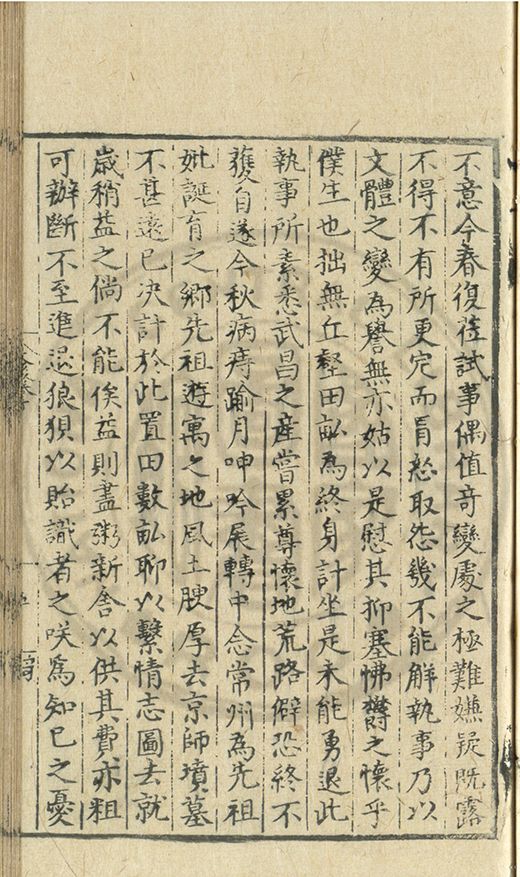 不意今春復莅試事偶值奇變處之極難嫌疑既露
不得不有所更定而胥慾取怨幾不能解執事乃以
文體之變為譽無亦姑以是慰其抑塞怫欝之懷乎
僕生也拙無丘壑田畝為終身計坐是未能勇退此
執事所素悉武昌之産嘗累尊懐地荒路僻恐終不
獲自遂今秋病痔踰月呻吟展轉中念常州為先祖
妣誕育之鄉先祖遊寓之地風土腴厚去京師墳墓
不甚遠已决計於此置田數畝聊以繫情志圖去就
歲稍益之倘不能俟益則盡粥新舎以供其費亦粗
可辦斷不至進退狼狽以貽識者之咲為知已之憂